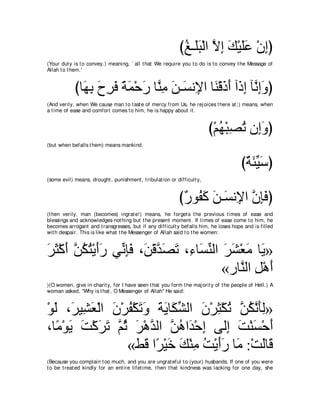 (إِنْ عَلَيْكَ إِلاَّ الْبَلَـغُ)
(Your duty is to convey.) meaning, `all that We require you to do is to convey the Message of
Allah to them.'
(وَإِنَّآ إِذَآ أَذَقْنَا الإِنسَـنَ مِنَّا رَحْمَةً فَرِحَ بِهَا)
(And verily, when We cause man to taste of mercy from Us, he rejoices there at;) means, when
a time of ease and comfort comes to him, he is happy about it.
(وَإِن تُصِبْهُمْ)
(but when befalls them) means mankind.
(سَيِّئَةٌ)
(some evil) means, drought, punishment, tribulation or difficulty,
(فَإِنَّ الإِنسَـنَ كَفُورٌ)
(then verily, man (becomes) ingrate!) means, he forgets the previous times of ease and
blessings and acknowledges nothing but the present moment. If times of ease come to him, he
becomes arrogant and transgresses, but if any difficulty befalls him, he loses hope and is filled
with despair. This is like what the Messenger of Allah said to the women:
«يَا مَعْشَرَ النِّسَاءِ، تَصَدَّقْنَ، فَإِنِّي رَأَيْتُكُنَّ أَكْثَرَ
أَهْلِ النَّار»
(O women, give in charity, for I have seen that you form the majority of the people of Hell.) A
woman asked, "Why is that, O Messenger of Allah" He said:
«لِأَنَّكُنَّ تُكْثِرْنَ الشِّكَايَةَ وَتَكْفُرْنَ الْعَشِيرَ، لَوْ
أَحْسَنْتَ إِلَى إِحْدَاهُنَّ الدَّهْرَ ثُمَّ تَرَكْتَ يَوْمًا،
قَالَتْ: مَا رَأَيْتُ مِنْكَ خَيْرًا قَط»
(Because you complain too much, and you are ungrateful to (your) husbands. If one of you were
to be treated kindly for an entire lifetime, then that kindness was lacking for one day, she